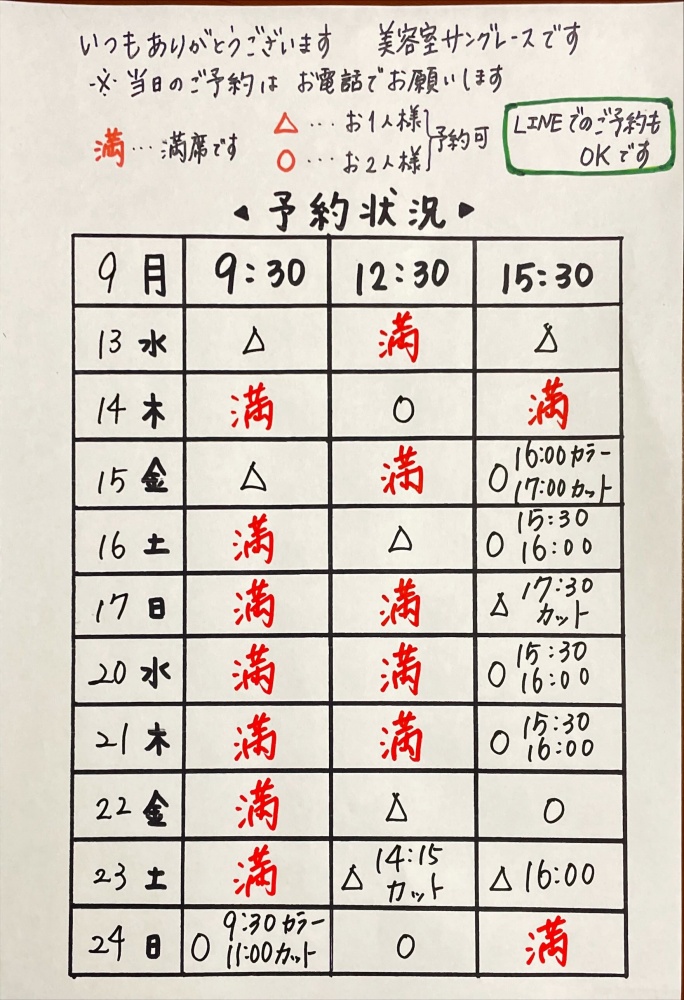 いつもありがとうございます 美容室サングレースです
※ 当日のご予約は お電話でお願いします
満 … 満席です
△ … お1人様
○ … お2人様
予約可
LINEでのご予約も
OKです
◀ 予約状況 ▶
9月 9:30 12:30 15:30
13 水 △ 満 △
14 木 満 ○ 満
15 金 △ 満 ○ 16:00 カラー
17:00 カット
16 土 満 △ ○ 15:30
16:00
17 日 満 満 △ 17:30
カット
20 水 満 満 ○ 15:30
16:00
21 木 満 満 ○ 15:30
16:00
22 金 満 △ ○
23 土 満 △ 14:15
カット
△ 16:00
24 日 ○ 9:30 カラー
11:00 カット
○ 満